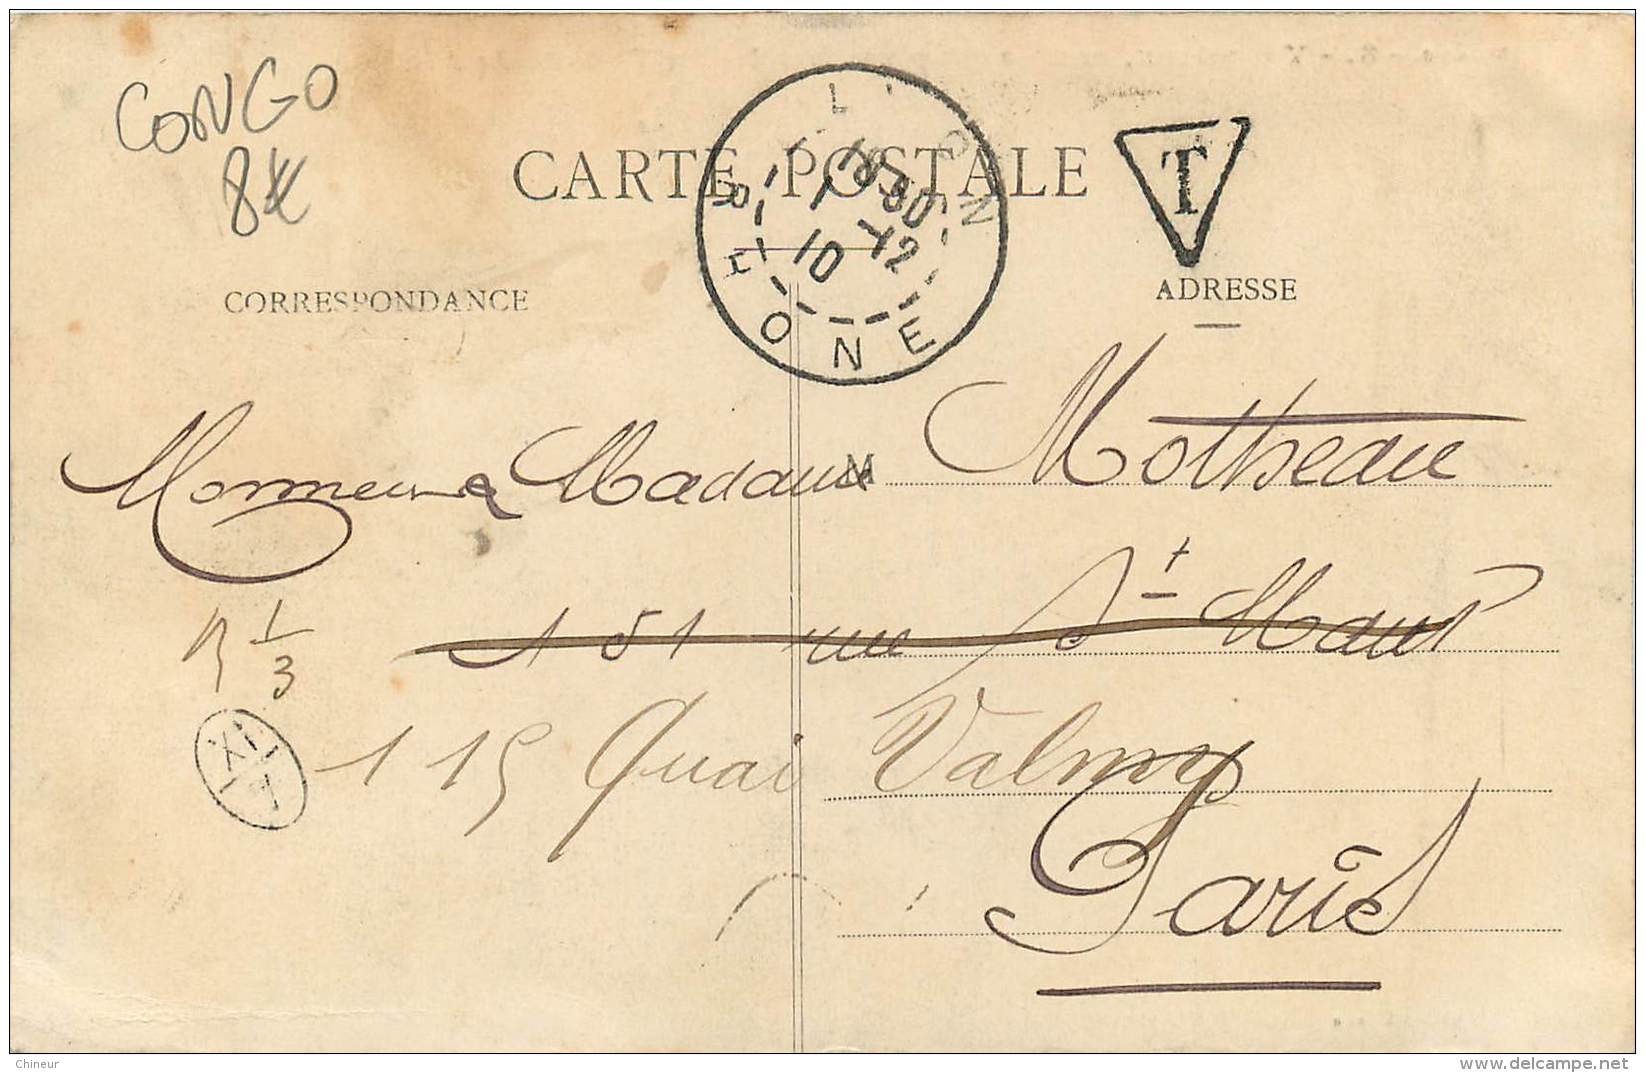 CONGO
8€
CARTE POSTALE
LYON
RHONE
10 12
T
CORRESPONDANCE
ADRESSE
Monsieur & Madame M Motheau
151 rue St Maur
1/3
XII
7
115 Quai Valmy
Paris
Chineur
www.delcampe.net